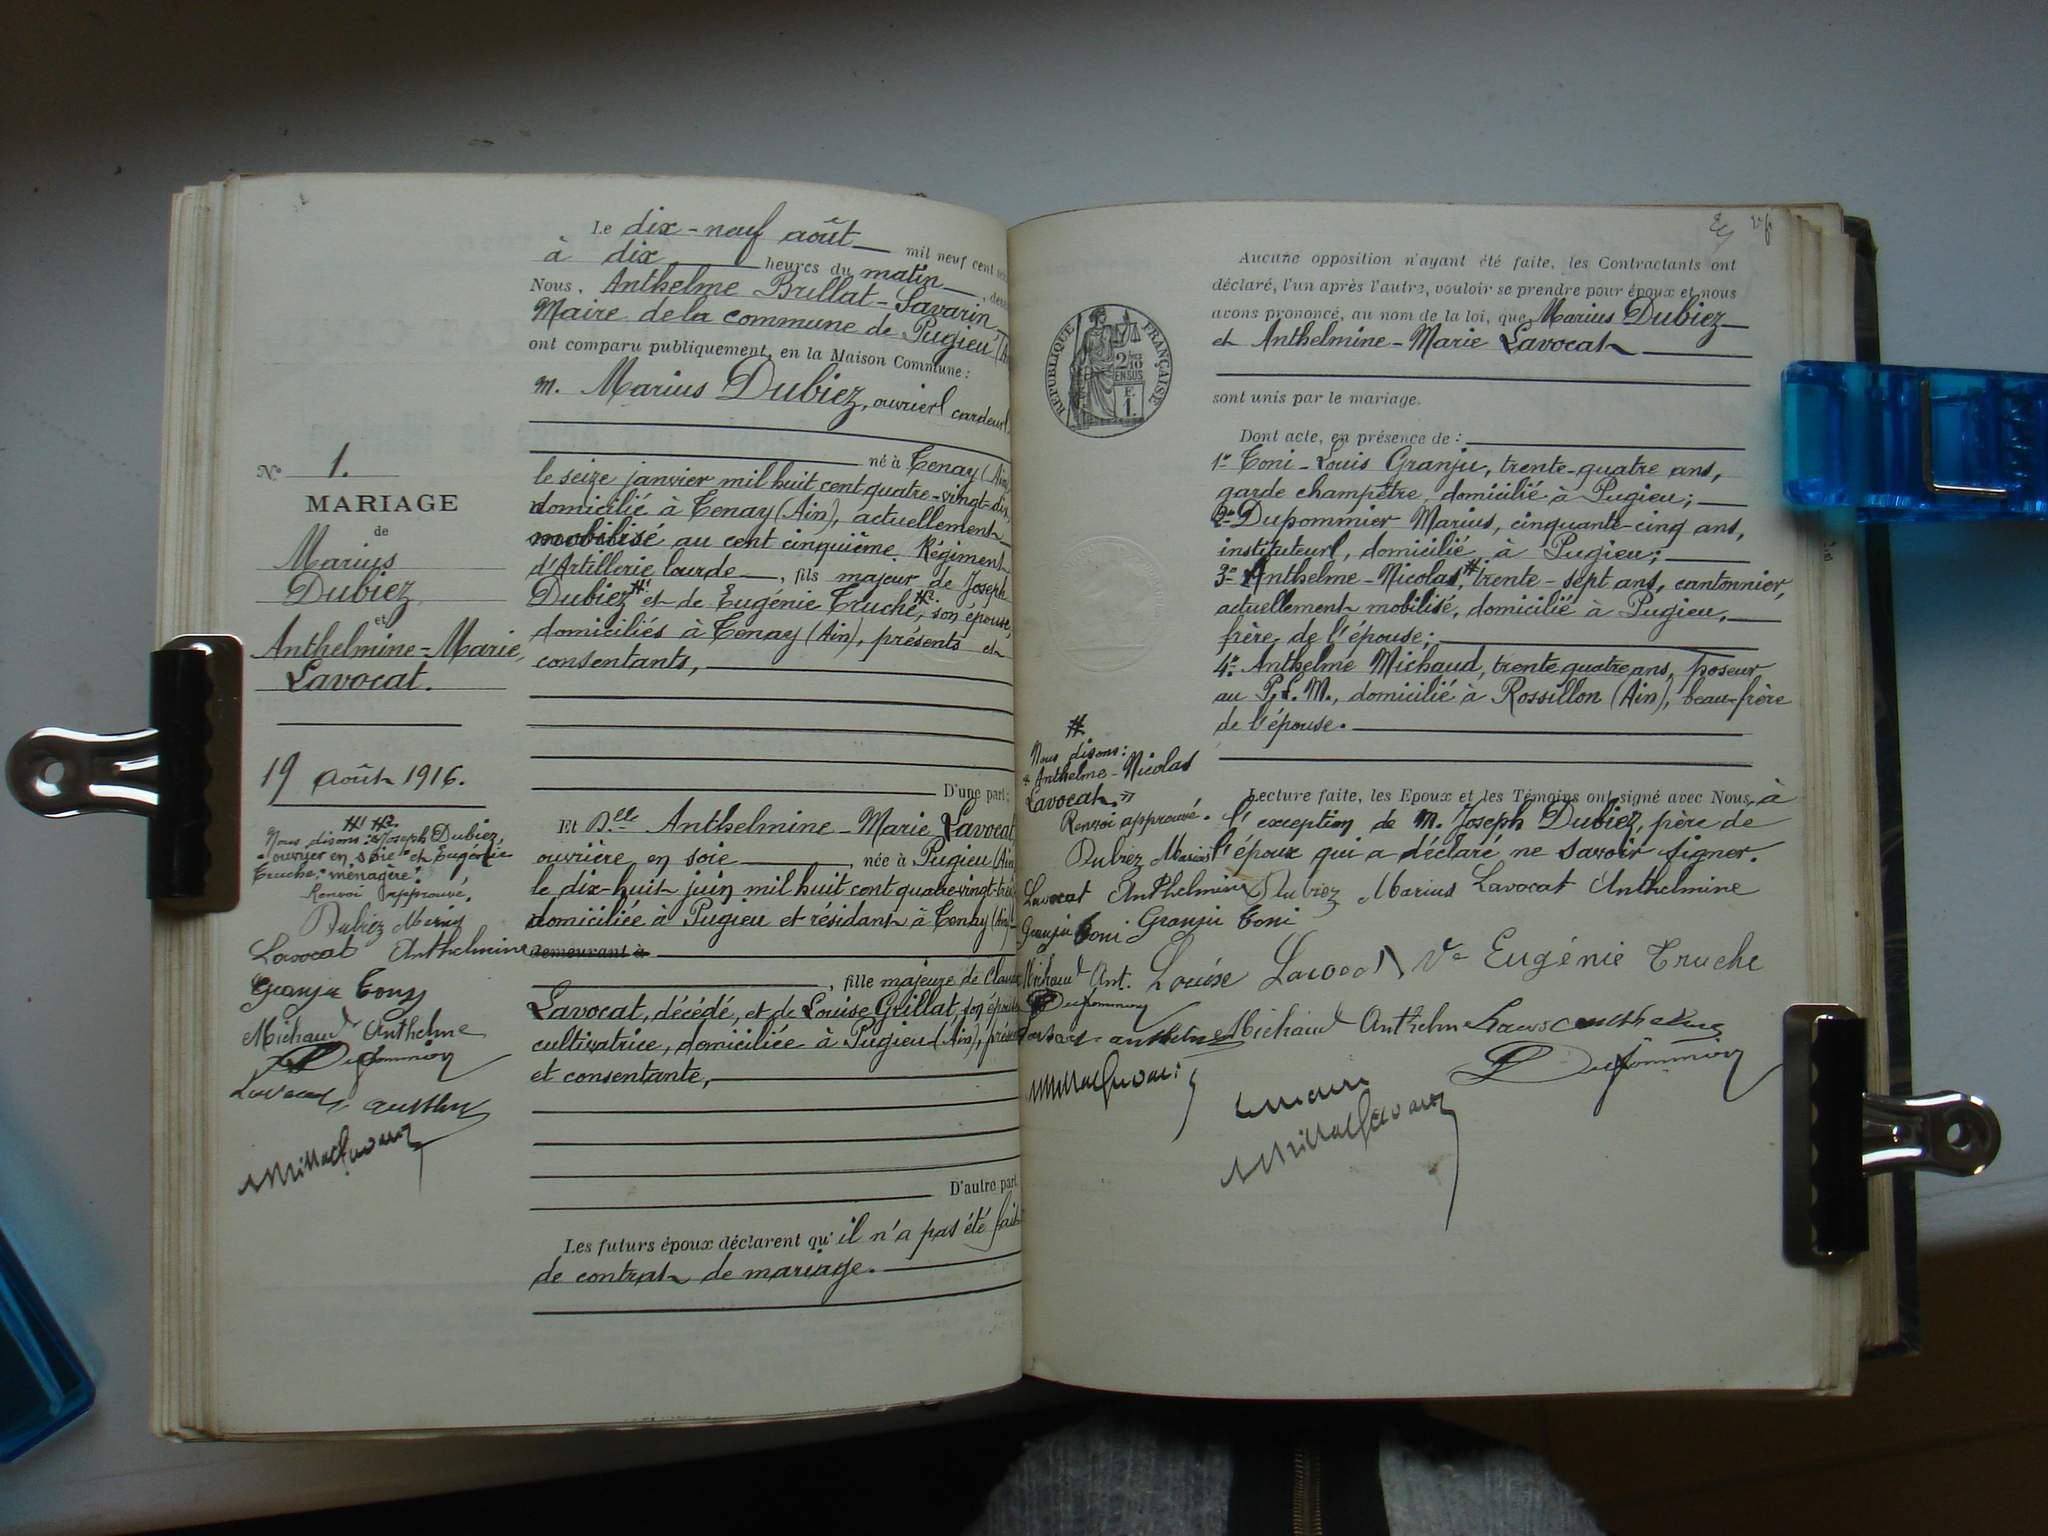 Le dix-neuf août mil neuf cent
à dix heures du matin
Nous, Anthelme Brillat-Savarin
Maire de la commune de Pugieu
ont comparu publiquement en la Maison Commune :
M. Marius Dubiez, ouvrier cardeur,
né à Tenay (Ain)
le seize janvier mil huit cent quatre-vingt-dix,
domicilié à Tenay (Ain), actuellement
mobilisé au cent cinquième Régiment
d'Artillerie lourde, fils majeur de Joseph
Dubiez #1 et de Eugénie Truche, #2 son épouse,
domiciliés à Tenay (Ain), présents et
consentants,
D'une part;
Et Delle Anthelmine-Marie Lavocat
ouvrière en soie, née à Pugieu (Ain
le dix-huit juin mil huit cent quatre-vingt-
domiciliée à Pugieu et résidant à Tenay (Ain)
demeurant à
, fille majeure de Claude
Lavocat, décédé, et de Louise Grillat, son épouse
cultivatrice, domiciliée à Pugieu (Ain),
et consentante,
D'autre part
Les futurs époux déclarent qu'il n'a pas été fait
de contrat de mariage.
N° 1.
MARIAGE
de
Marius
Dubiez
et
Anthelmine-Marie
Lavocat.
19 août 1916.
#1 #2
Nous disons : "Joseph Dubiez,
ouvrier en soie" et "Eugénie
Truche, ménagère".
Renvoi approuvé.
Dubiez Marius
Lavocat Anthelmine
Granju Tony
Michaud Anthelme
Dupommier
Lavocat
Aucune opposition n'ayant été faite, les Contractants ont
déclaré, l'un après l'autre, vouloir se prendre pour époux et nous
avons prononcé, au nom de la loi, que Marius Dubiez
et Anthelmine-Marie Lavocat
sont unis par le mariage.
RÉPUBLIQUE FRANÇAISE
2/10
EN SUS
E.
1.
Dont acte, en présence de :
1° Toni-Louis Granju, trente-quatre ans,
garde champêtre, domicilié à Pugieu;
2° Dupommier Marius, cinquante-cinq ans,
instituteur, domicilié à Pugieu;
3° Anthelme-Nicolas, # trente-sept ans, cantonnier,
actuellement mobilisé, domicilié à Pugieu,
frère de l'épouse;
4° Anthelme Michaud, trente quatre ans, poseur
au P.L.M., domicilié à Rossillon (Ain), beau-frère
de l'épouse.
#
Nous disons :
"Anthelme-Nicolas
Lavocat."
Renvoi approuvé.
Dubiez Marius
Lavocat Anthelmine
Granju Toni
Michaud Ant.
Dupommier
Lecture faite, les Epoux et les Témoins ont signé avec Nous, à
l'exception de M. Joseph Dubiez, père de
l'époux qui a déclaré ne savoir signer.
Dubiez Marius Lavocat Anthelmine
Granju Toni
Louise Lavocat Eugénie Truche
Michaud Anthelme
Dupommier